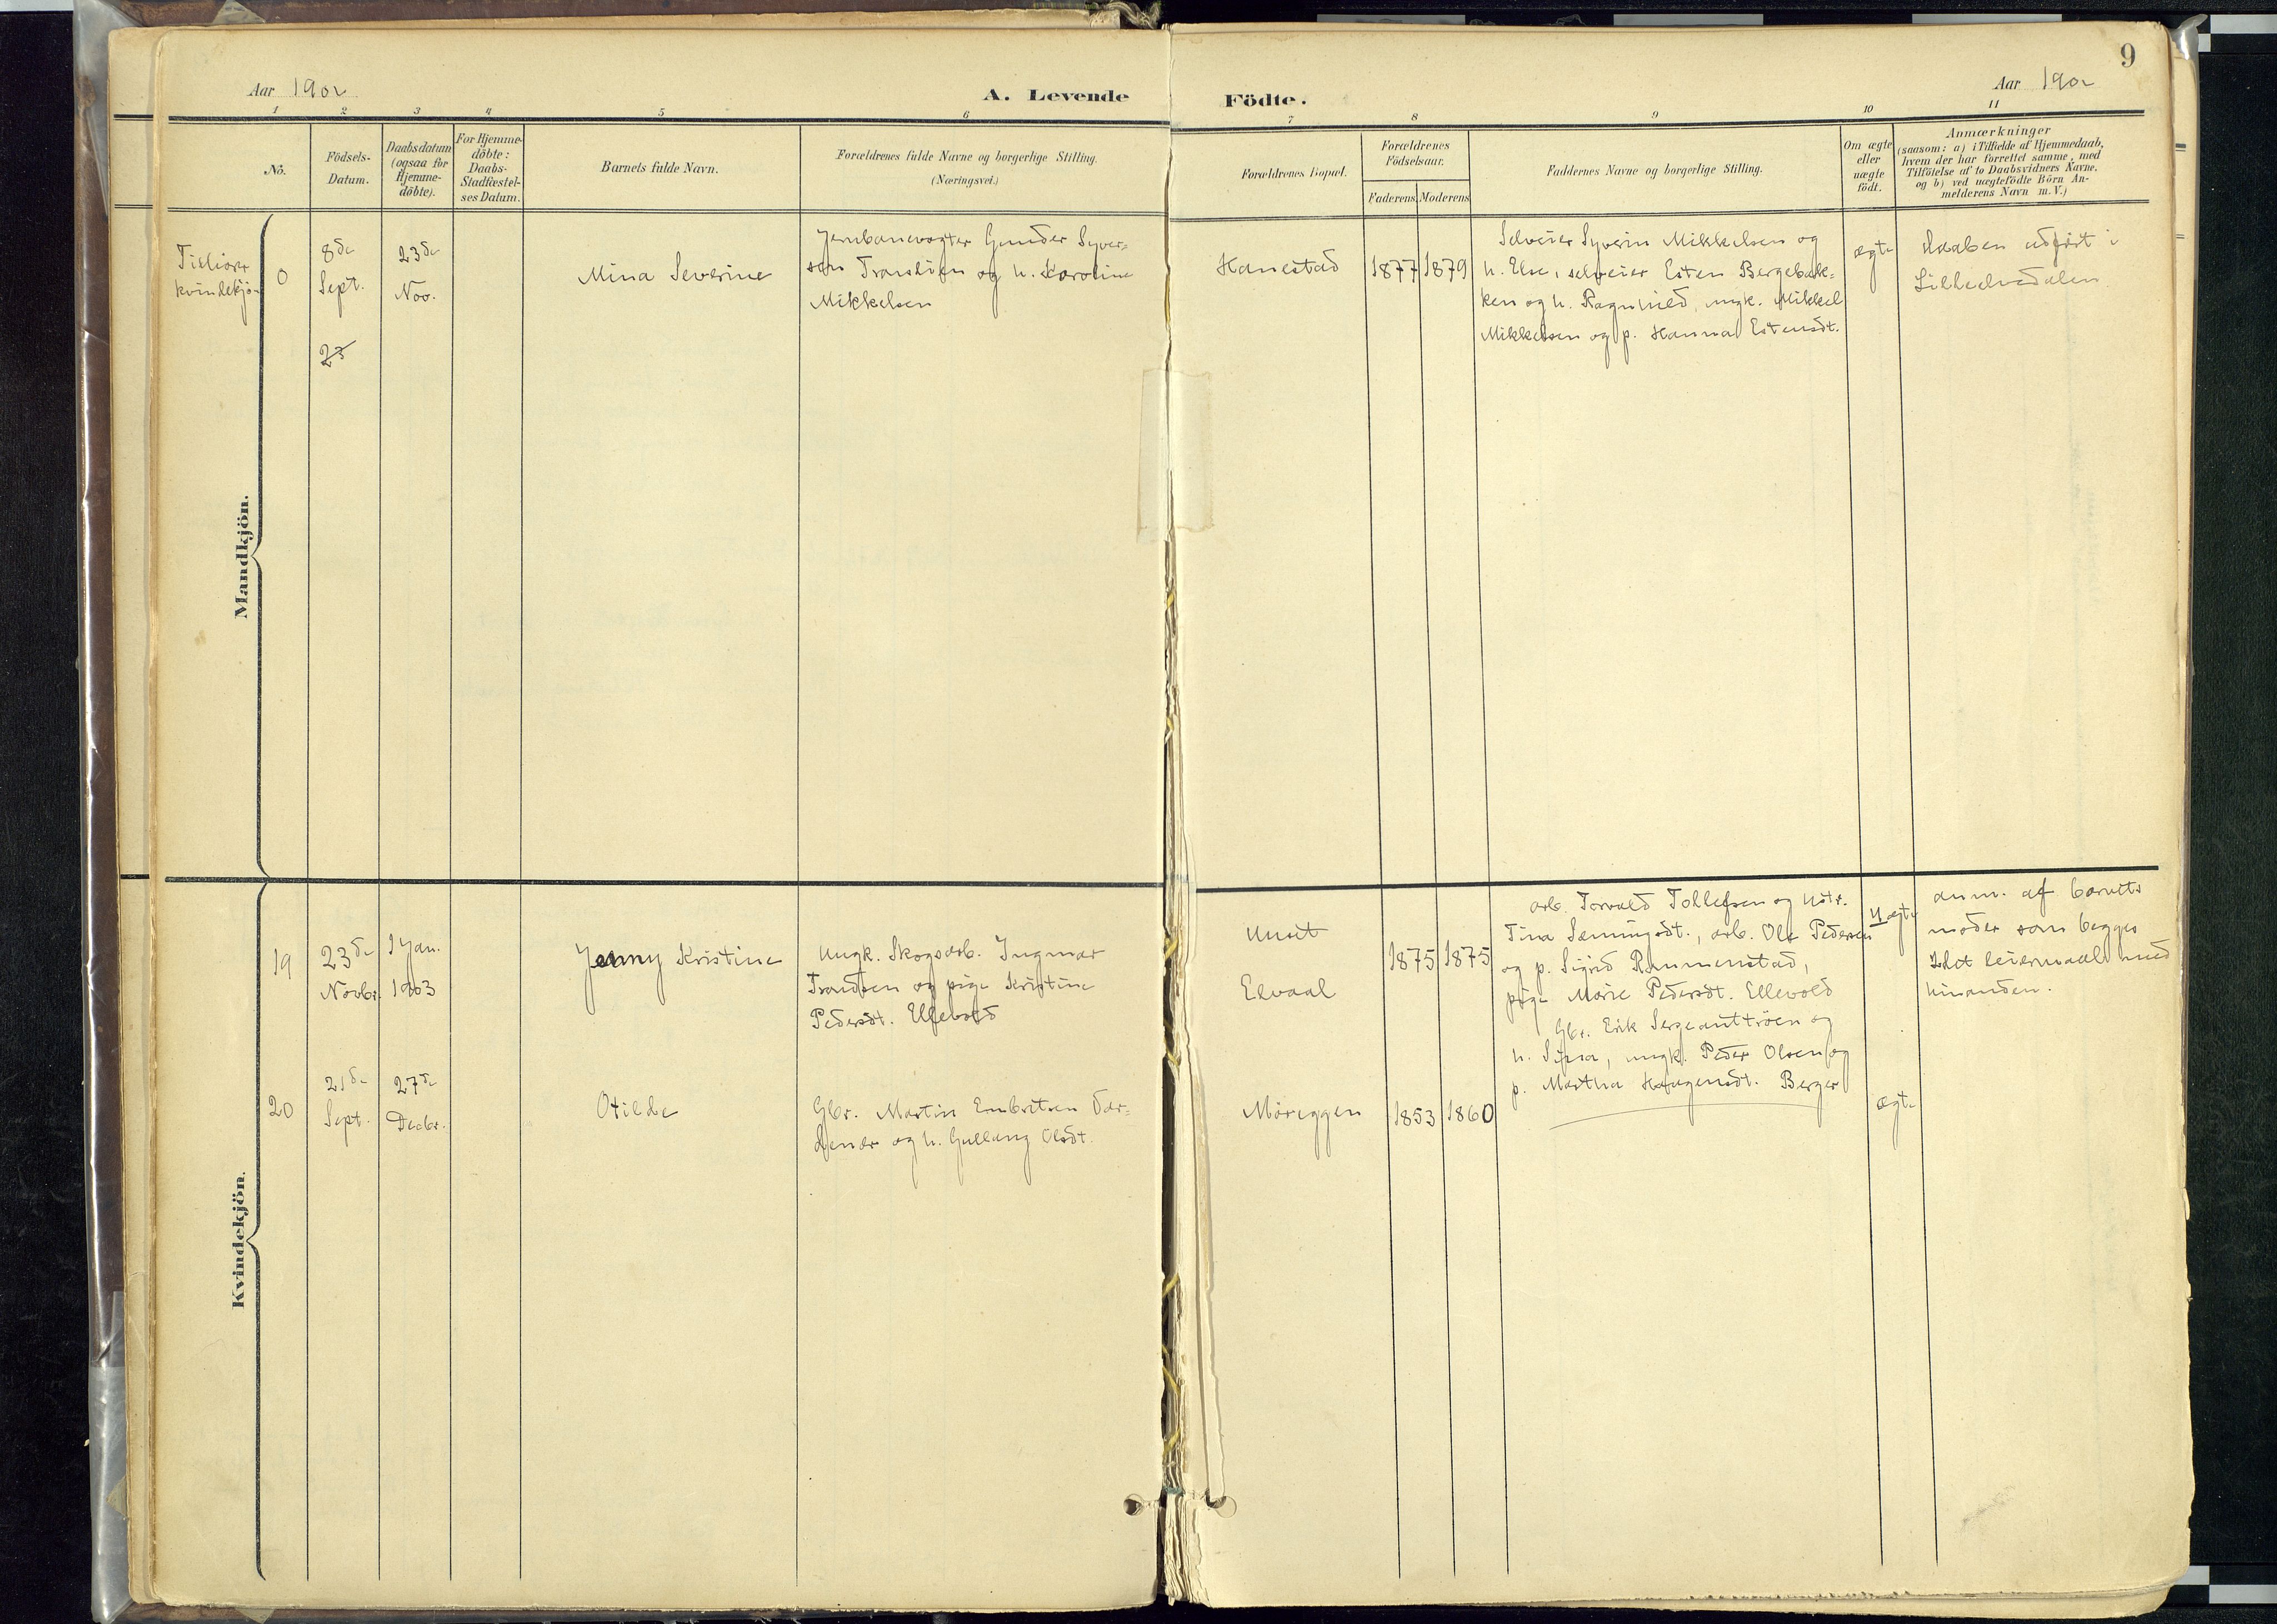 9
Aar 1902
A. Levende
Födte.
Aar 1902
1 2 3 4 5 6
7 8 9 10 11
No.
Födsels-
Datum.
Daabsdatum
(ogsaa for
Hjemme-
döbte).
For Hjemme-
döbte:
Daabs-
Stadfæstel-
ses Datum.
Barnets fulde Navn.
Forældrenes fulde Navne og borgerlige Stilling.
(Næringsvei.)
Forældrenes Bopæl.
Forældrenes
Födselsaar.
Faderens. Moderens
Faddernes Navne og borgerlige Stilling.
Om ægte
eller
uægte
födt.
Anmærkninger
(saasom: a) i Tilfælde af Hjemmedaab,
hvem der har forrettet samme, med
Tilföielse af to Daabsvidners Navne.
og b) ved uægtefödte Börn An-
melderens Navn m. V.)
Mandkjön.
Tilhörer
kvindekjön
0
8de
Sept.
23
23de
Nov.
Mina Severine
Jernbanevogter Gunder Syver-
sen og h. Karoline
Mikkelsen
Hanestad
1877 1879
Selveier Syverin Mikkelsen og
h. Else, selveier Esten Bergebak-
ken og h. Ragnhild, ungk. Mikkel
Mikkelsen og p. Hanna Estensdt.
ægte
Daaben udfört i
Lilleelvedalen
Kvindekjön.
19
23de
Novbr.
1 Jan.
1903
Jenny Kristine
Ungk. Skogsarb. Ingmar
Trondsen og pige Kristine
Pedersdt. Ellevold
Unset
Elvaal
1875 1875
arb. Torvald Tollefsen og hstr.
Tina Sæmingsdt., arb. Ole Pedersen
og p. Sigrid Rimmerstad,
pige Marie Pedersdt. Ellevold
uægte
anm. af barnets
moder som begges
1det leiermaal med
hinanden.
20
21de
Sept.
27de
Decbr.
Otilde
Gbr. Martin Embretsen
og h. Gullaug Olsdt.
Möreggen
1853 1860
Gbr. Erik Sergeanttröen og
h. Signa, ungk. Peder Olsen og
p. Martha Haagensdt. Berger
ægte